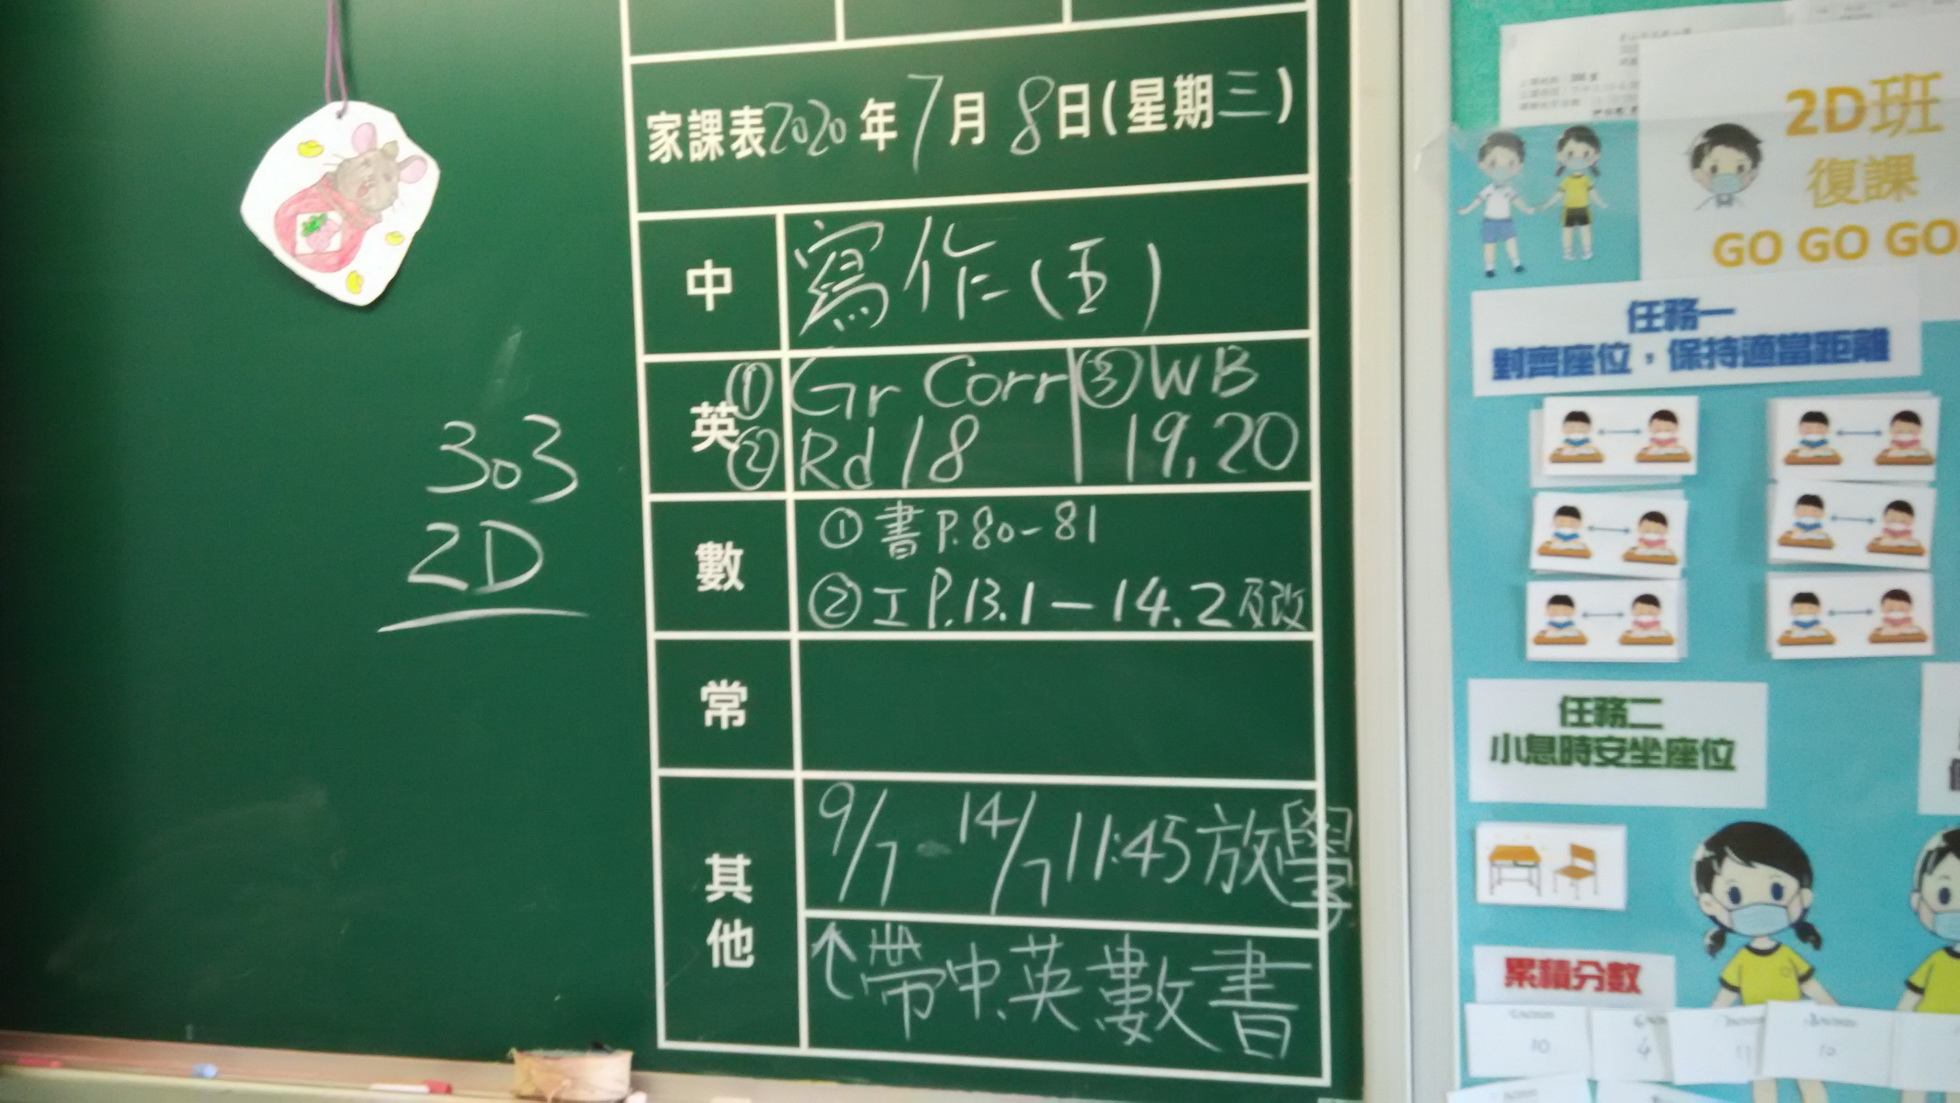 303
2D
家課表2020年7月8日(星期三)
中
寫作(五)
英
① Gr Corr
② Rd 18
③ WB
19, 20
數
① 書 P.80-81
② 工 P.13.1 — 14.2 及改
常
其他
9/7 - 14/7 11:45 放學
↑帶中、英數書
2D班
復課
GO GO GO
任務一
對齊座位，保持適當距離
任務二
小息時安坐座位
累積分數
10
4
11
10